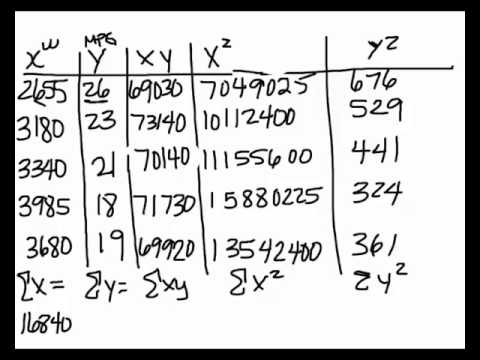 X^W Y^MPG XY X² Y²
2655 26 69030 7049025 676
3180 23 73140 10112400 529
3340 21 70140 11155600 441
3985 18 71730 15880225 324
3680 19 69920 13542400 361
ΣX= ΣY= ΣXY ΣX² ΣY²
16840